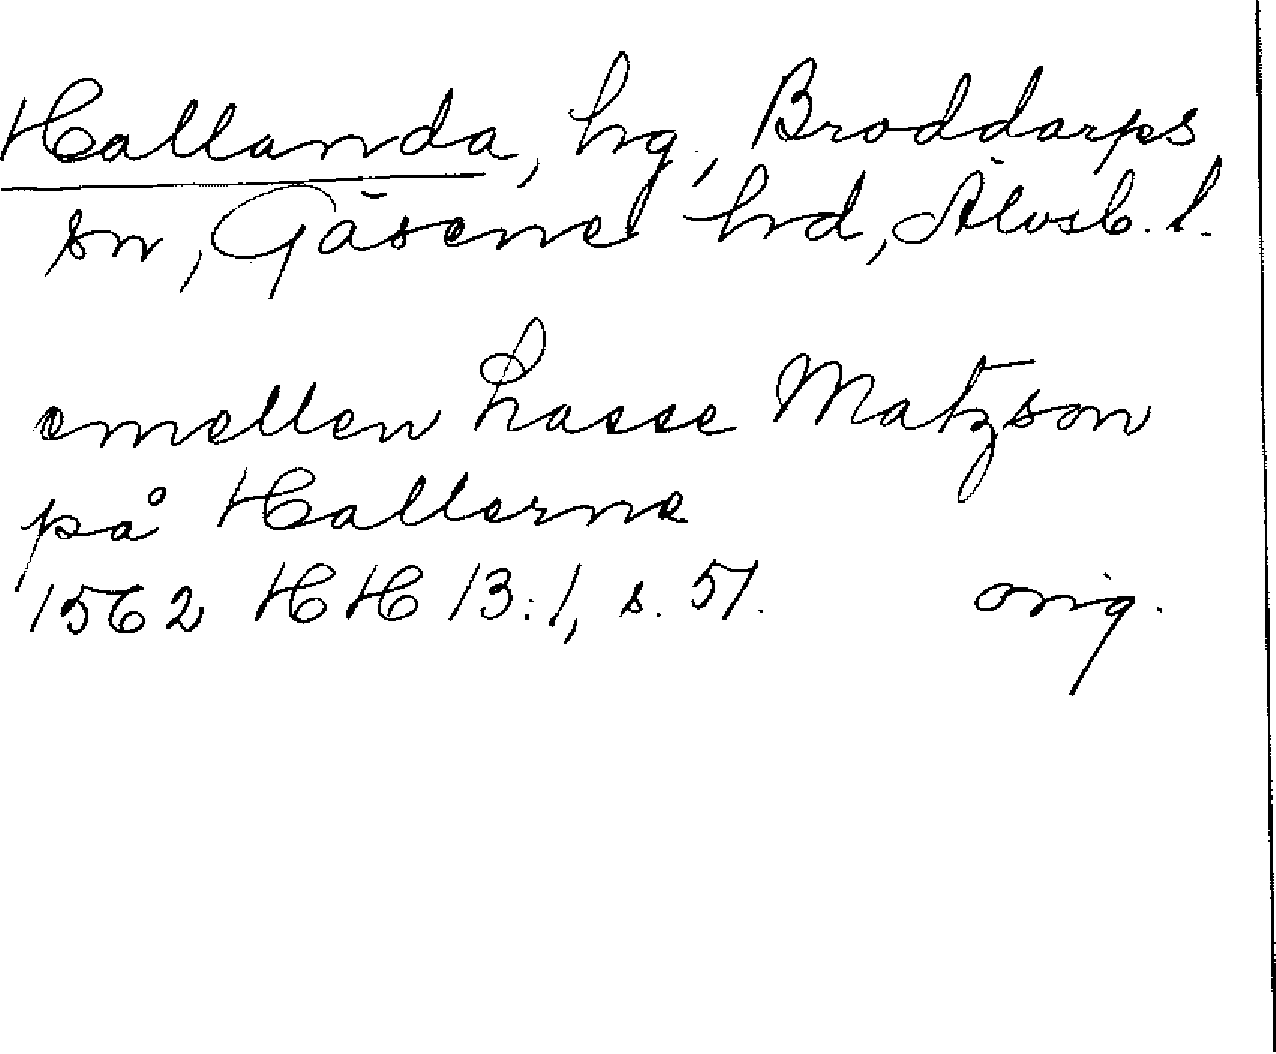 Hallanda, hg., Broddarps
sn, Gäsene hrd, Älvsb. l.
emellen Lasse Matzson
på Hallerne
1562 HH 13:1, s. 51. orig.